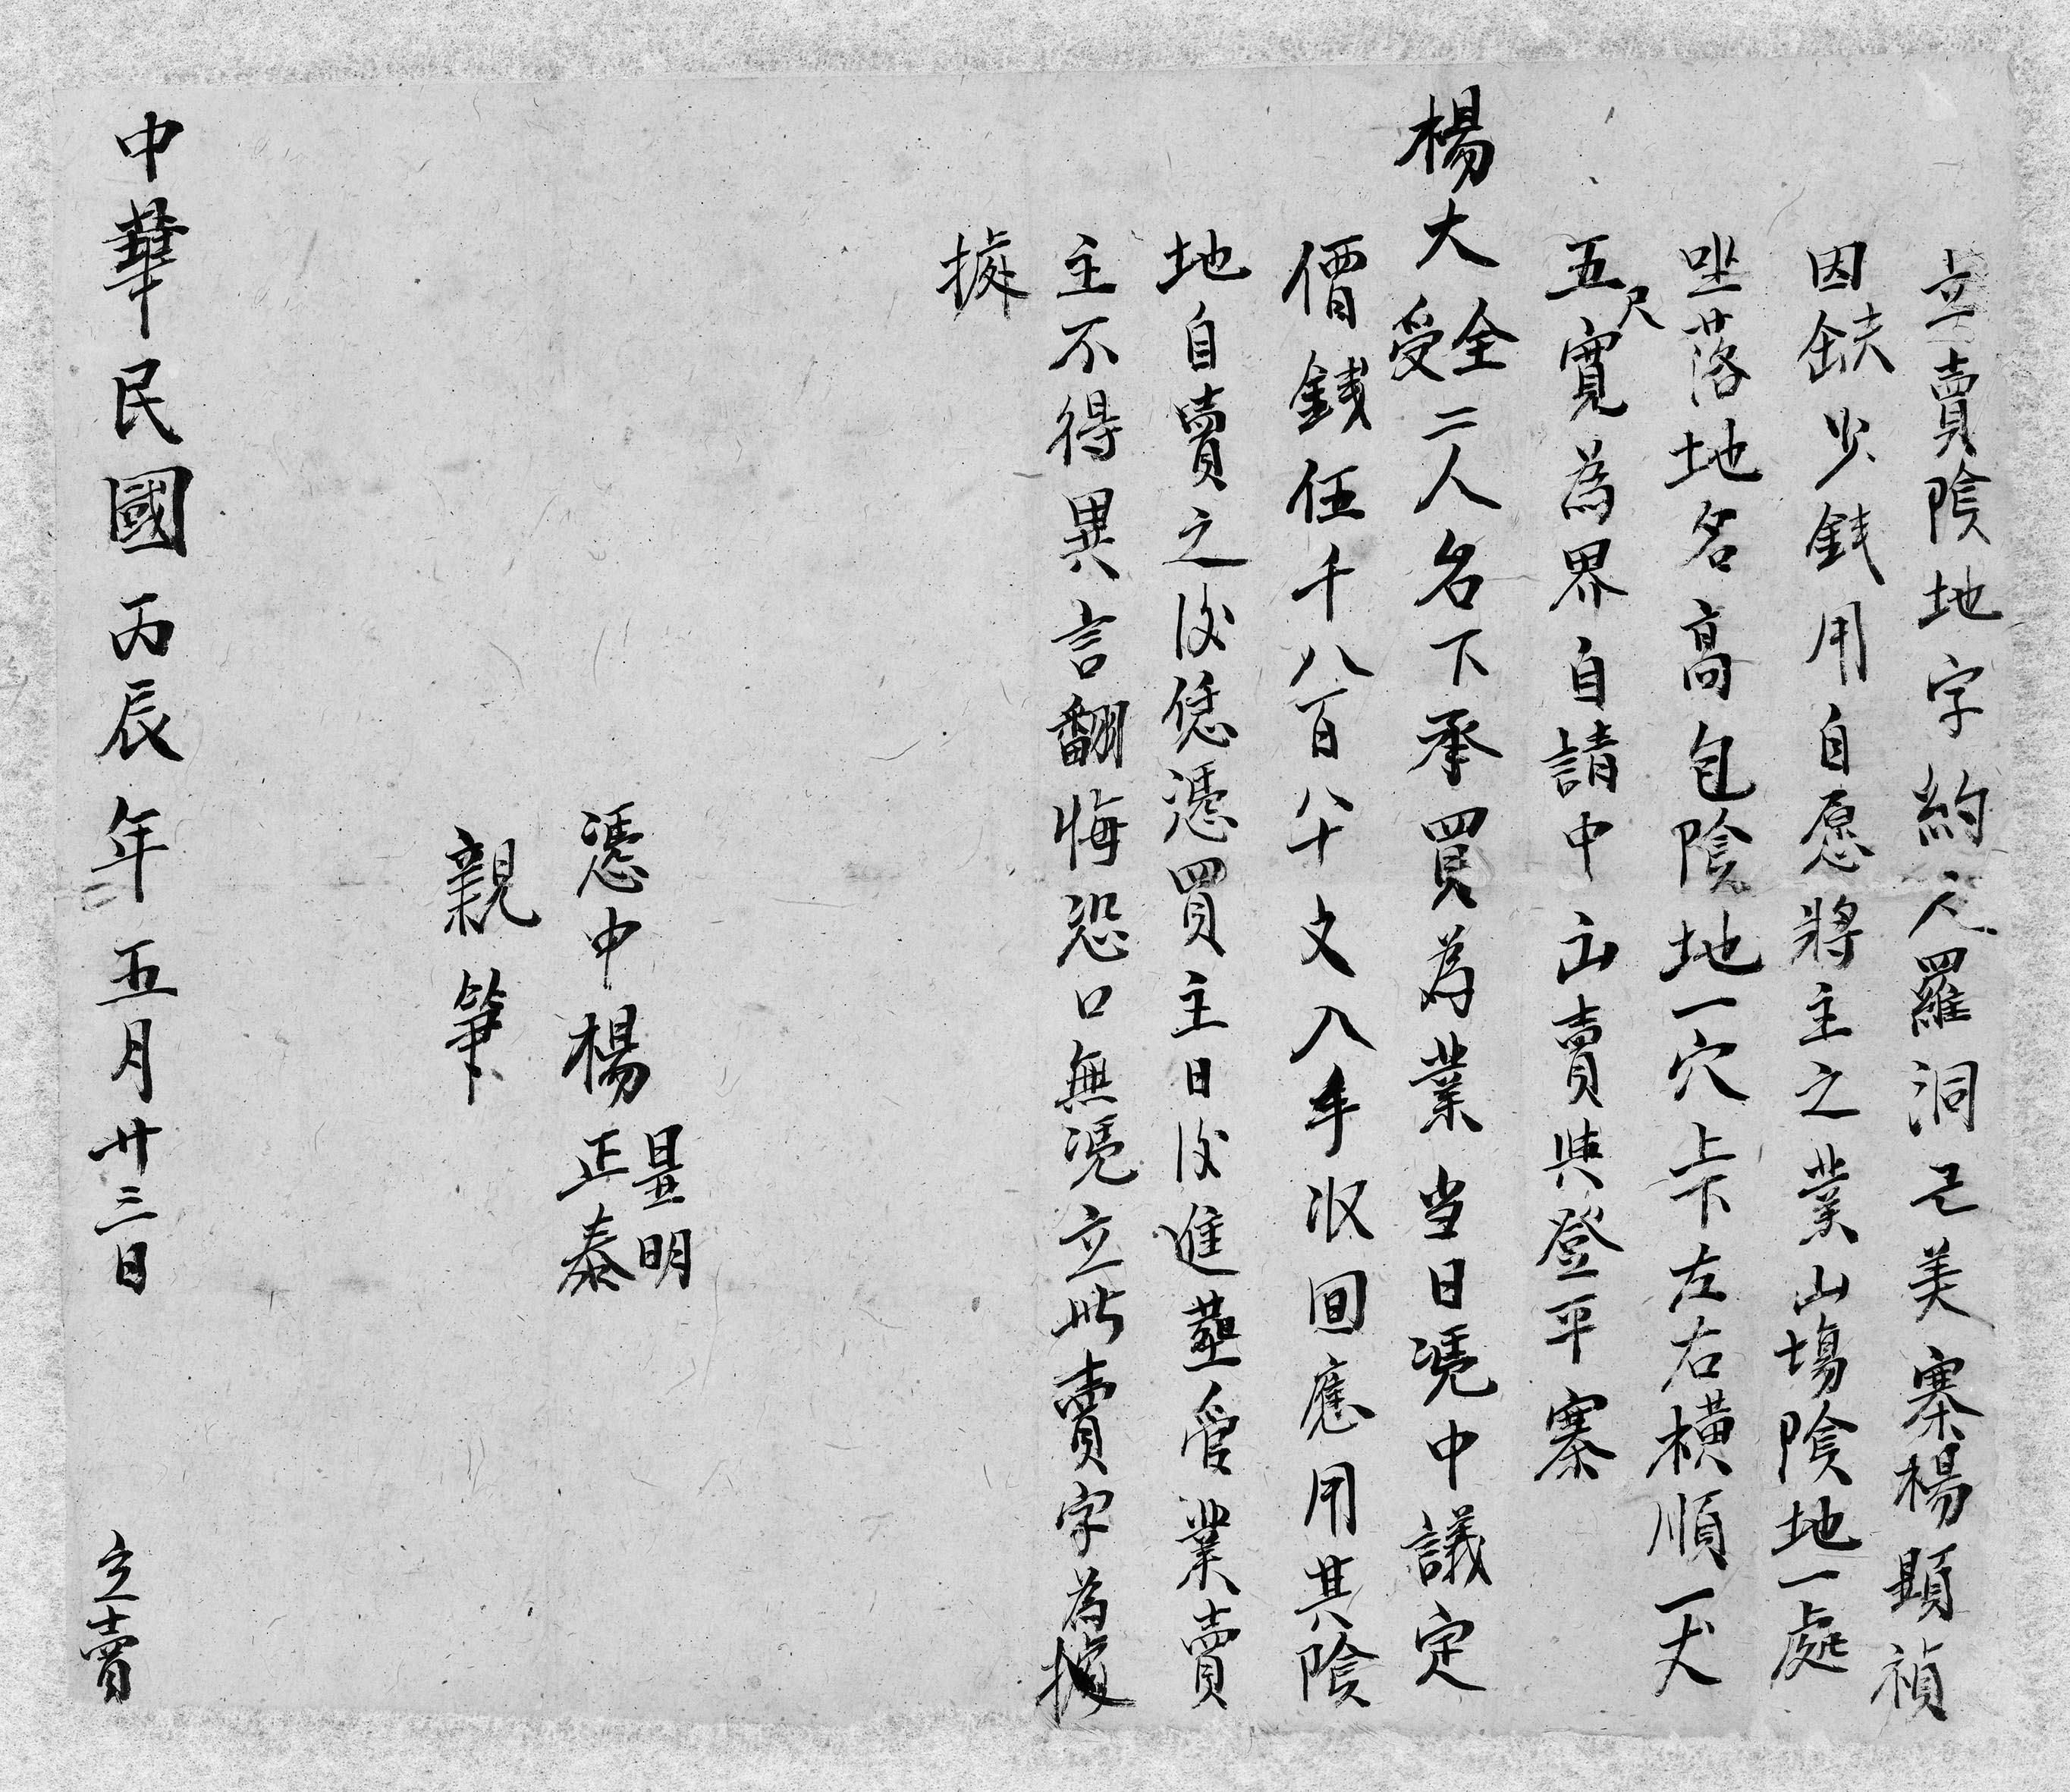 立賣陰地字約人羅洞已美寨楊顕禎
因缺少錢用自愿將主之業山塲陰地一處
坐落地名高包陰地一穴上下左右横順一丈
五尺寬為界自請中山賣與登平寨
楊大全受二人名下承買為業当日凴中議定
價錢伍千八百八十文入手收囬應用其陰
地自賣之後恁憑買主日後進塟管業賣
主不得異言翻悔恐口無凴立此賣字為
據
憑中楊昌明正泰
親筆
中華民國丙辰年五月廿三日 立賣